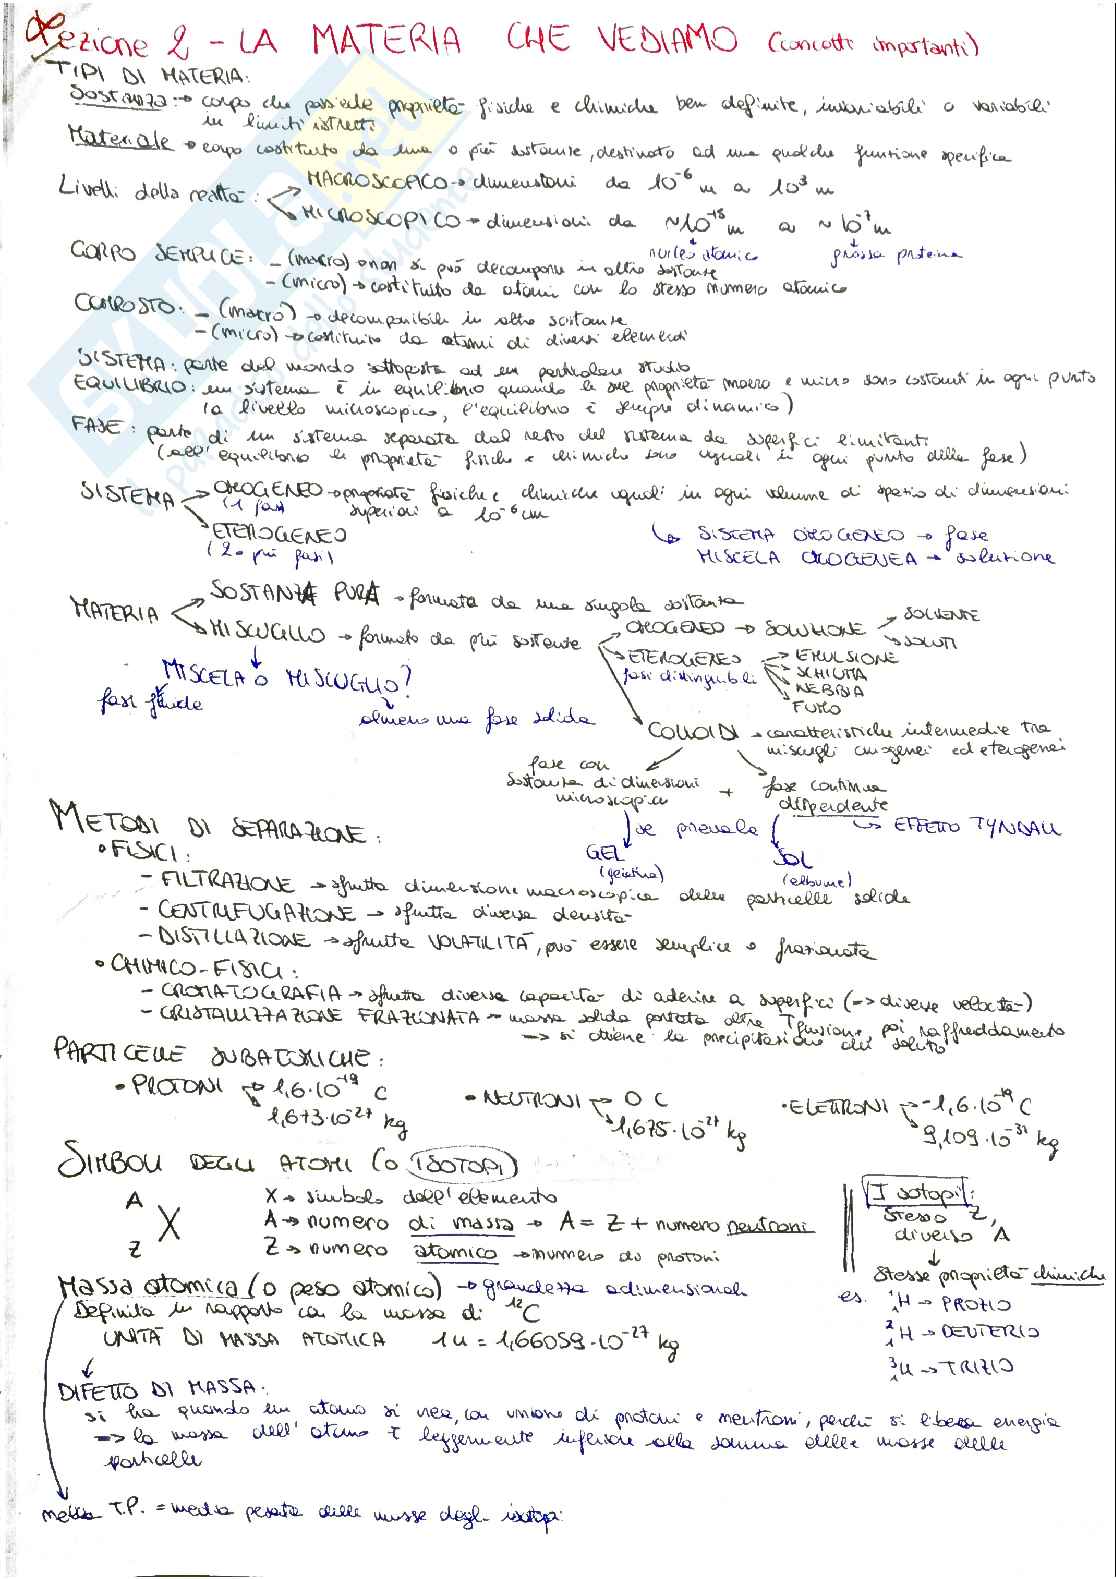 Lezione 2 - LA MATERIA CHE VEDIAMO (concetti importanti)
TIPI DI MATERIA:
Sostanza: → corpo che possiede proprietà fisiche e chimiche ben definite, invariabili o variabili
in limiti ristretti
Materiale → corpo costituito da una o più sostanze, destinato ad una qualche funzione specifica
Livelli della realtà: MACROSCOPICO → dimensioni da 10⁻⁶ m a 10³ m
MICROSCOPICO → dimensioni da ~10⁻¹⁵ m a ~10⁻⁷ m
nucleo atomico grossa proteina
CORPO SEMPLICE: - (macro) → non si può decomporre in altre sostanze
- (micro) → costituito da atomi con lo stesso numero atomico
COMPOSTO: - (macro) → decomponibile in altre sostanze
- (micro) → costituito da atomi di diversi elementi
SISTEMA: parte del mondo sottoposta ad un particolare studio
EQUILIBRIO: un sistema è in equilibrio quando le sue proprietà macro e micro sono costanti in ogni punto
(a livello microscopico, l'equilibrio è sempre dinamico)
FASE: parte di un sistema separata dal resto del sistema da superfici limitanti
(all'equilibrio le proprietà fisiche e chimiche sono uguali in ogni punto della fase)
SISTEMA OMOGENEO → proprietà fisiche e chimiche uguali in ogni volume di spazio di dimensioni
(1 fase) superiori a 10⁻⁶ cm
ETEROGENEO
(2 o più fasi)
↳ SISTEMA OMOGENEO → fase
MISCELA OMOGENEA → soluzione
MATERIA SOSTANZA PURA → formata da una singola sostanza
MISCUGLIO → formato da più sostanze
OMOGENEO → SOLUZIONE SOLVENTE
SOLUTI
ETEROGENEO EMULSIONE
fasi distinguibili SCHIUMA
NEBBIA
FUMO
MISCELA O MISCUGLIO?
fasi fluide
almeno una fase solida
COLLOIDI → caratteristiche intermedie tra
miscugli omogenei ed eterogenei
fase con
sostanza di dimensioni
microscopiche
+ fase continua
disperdente
↳ EFFETTO TYNDALL
se prevale
GEL
(gelatina)
SOL
(albume)
METODI DI SEPARAZIONE:
• FISICI:
- FILTRAZIONE → sfrutta dimensione macroscopica delle particelle solide
- CENTRIFUGAZIONE → sfrutta diversa densità
- DISTILLAZIONE → sfrutta VOLATILITÀ, può essere semplice o frazionata
• CHIMICO-FISICI:
- CROMATOGRAFIA → sfrutta diversa capacità di aderire a superfici (=> diverse velocità)
- CRISTALLIZZAZIONE FRAZIONATA → massa solida portata oltre T fusione, poi raffreddamento
=> si ottiene la precipitazione del soluto
PARTICELLE SUBATOMICHE:
• PROTONI → 1,6·10⁻¹⁹ C
1,673·10⁻²⁷ kg
• NEUTRONI → 0 C
1,675·10⁻²⁷ kg
• ELETTRONI → -1,6·10⁻¹⁹ C
9,109·10⁻³¹ kg
SIMBOLI DEGLI ATOMI (O ISOTOPI)
A
X
Z
X → simbolo dell'elemento
A → numero di massa → A = Z + numero neutroni
Z → numero atomico → numero di protoni
Isotopi:
stesso Z,
diverso A
↓
stesse proprietà chimiche
es. ¹₁H → PROZIO
²₁H → DEUTERIO
³₁H → TRIZIO
Massa atomica (o peso atomico) → grandezza adimensionale
Definita in rapporto con la massa di ¹²C
UNITÀ DI MASSA ATOMICA 1 u = 1,66059·10⁻²⁷ kg
DIFETTO DI MASSA:
si ha quando un atomo si crea, con unione di protoni e neutroni, perché si libera energia
=> la massa dell'atomo è leggermente inferiore alla somma delle masse delle
particelle
nella T.P. = media pesata delle masse degli isotopi